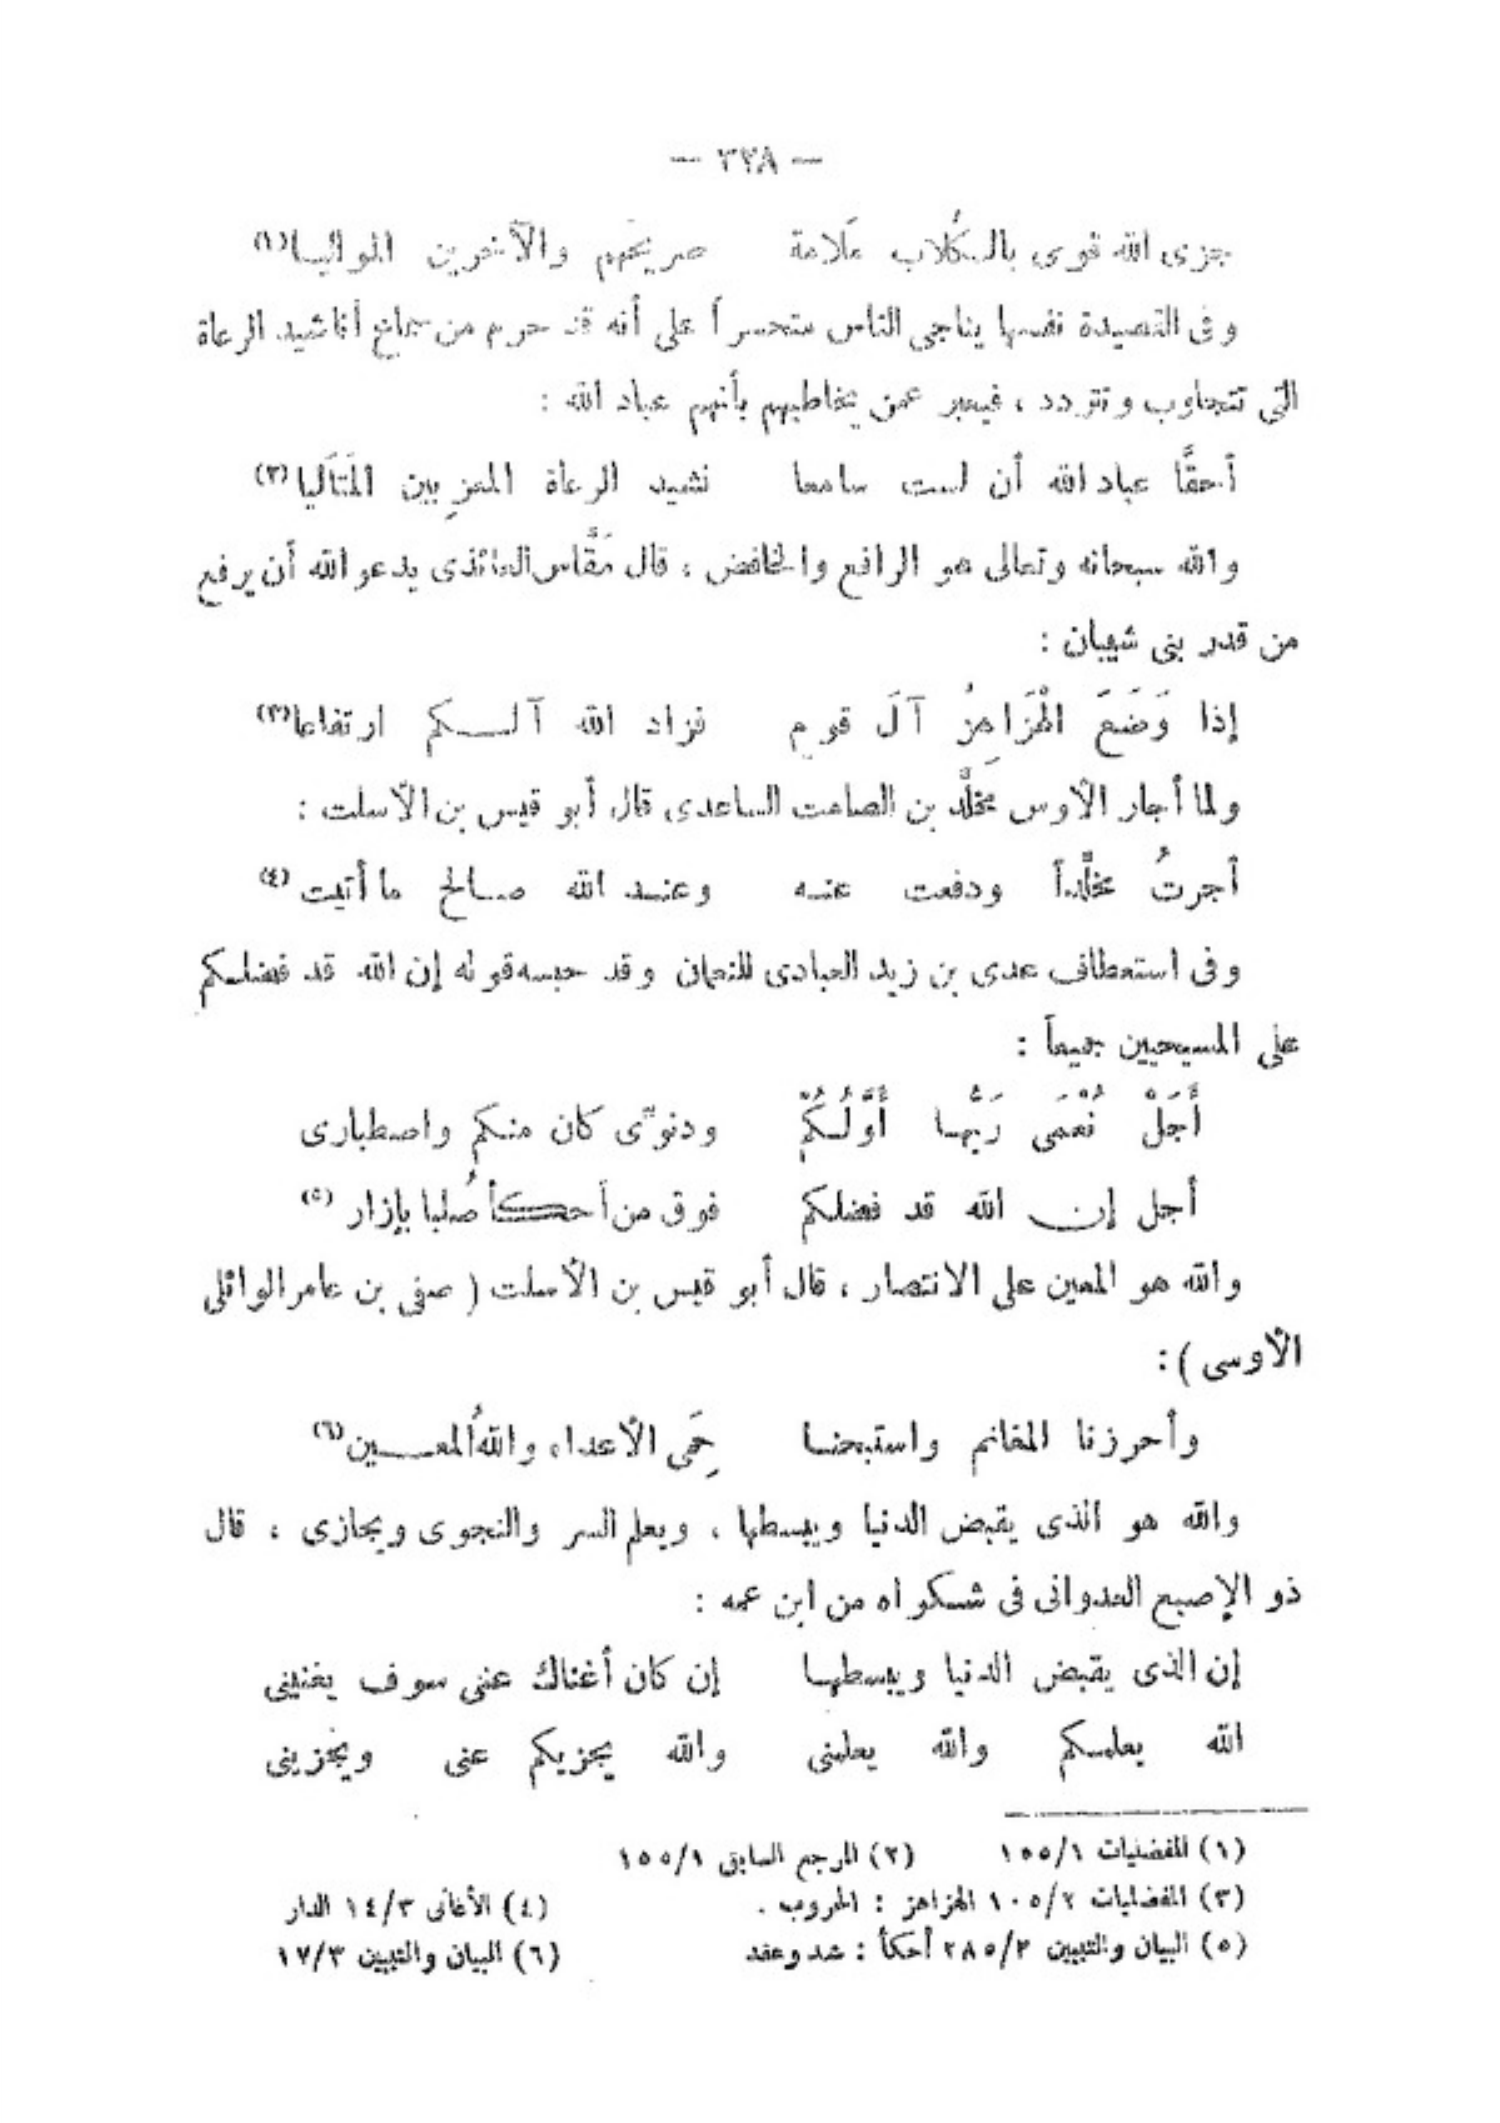 — ٣٢٨ —
جزى الله قومى بالكُلاب مَلامة صريحَهم والآخرين المواليا (١)
وفى القصيدة نفسها يناجى الناس متحسراً على أنه قد حرم من سماع أناشيد الرعاة
التى تتجاوب وتتردد ، فيعبر عمن يخاطبهم بأنهم عباد الله :
أحقًّا عباد الله أن لست سامعا نشيد الرعاة المعزِبين المَتَاليا (٢)
والله سبحانه وتعالى هو الرافع والخافض ، قال مَقَّاس العائذى يدعو الله أن يرفع
من قدر بنى شيبان :
إذا وَضَعَ الهَزَاهِزُ آلَ قوم فزاد الله آلكم ارتفاعا (٣)
ولما أجار الأوس مخلَّد بن الصامت الساعدى قال أبو قيس بن الأسلت :
أجرتُ مخلَّداً ودفعت عنه وعند الله صالح ما أتيت (٤)
وفى استعطاف عدى بن زيد العبادى للنعمان وقد حبسه قوله إن الله قد فضلكم
على المسيحيين جميعاً :
أَجَلْ نُعْمَى رَبُّها أَوَّلُكُمْ ودنوِّى كان منكم واصطبارى
أجل إن الله قد فضلكم فوق من أحكأ صُلبا بإزار (٥)
والله هو المعين على الانتصار ، قال أبو قيس بن الأسلت ( صفى بن عامر الوائلى
الأوسى ) :
وأحرزنا المغانم واستبحنا حِمَى الأعداء واللهُ المعين (٦)
والله هو الذى يقبض الدنيا ويبسطها ، ويعلم السر والنجوى ويجازى ، قال
ذو الإصبع العدوانى فى شكواه من ابن عمه :
إن الذى يقبض الدنيا ويبسطها إن كان أغناك عنى سوف يغنينى
الله يعلمكم والله يعلمنى والله يجزيكم عنى ويجزينى
(١) المفضليات ١/١٥٥ (٢) المرجع السابق ١/١٥٥
(٣) المفضليات ٢/١٠٥ الهزاهز : الحروب . (٤) الأغانى ٣/١٤ الدار
(٥) البيان والتبيين ٢/٢٨٥ أحكأ : شد وعقد (٦) البيان والتبيين ٣/١٧